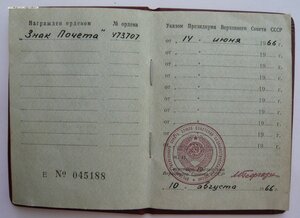 Награжден орденом № ордена
"Знак Почета" 473707
Е № 045188
Указом Президиума Верховного Совета СССР
от 14 июня 1966
от 19 г.
от 19 г.
от 19 г.
от 19 г.
от 19 г.
от 19 г.
от 19
Верховного Совета СССР
10 августа 1966